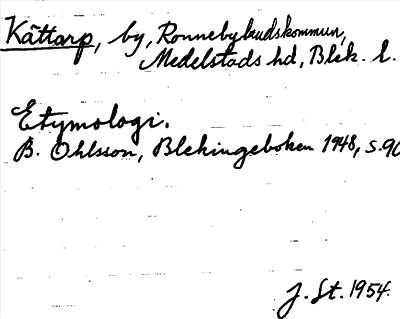 Kättarp, by, Ronnebylandskommun,
Medelstads hd, Blek. l.
Etymologi.
B. Ohlsson, Blekingeboken 1948, s.90
J. St. 1954.